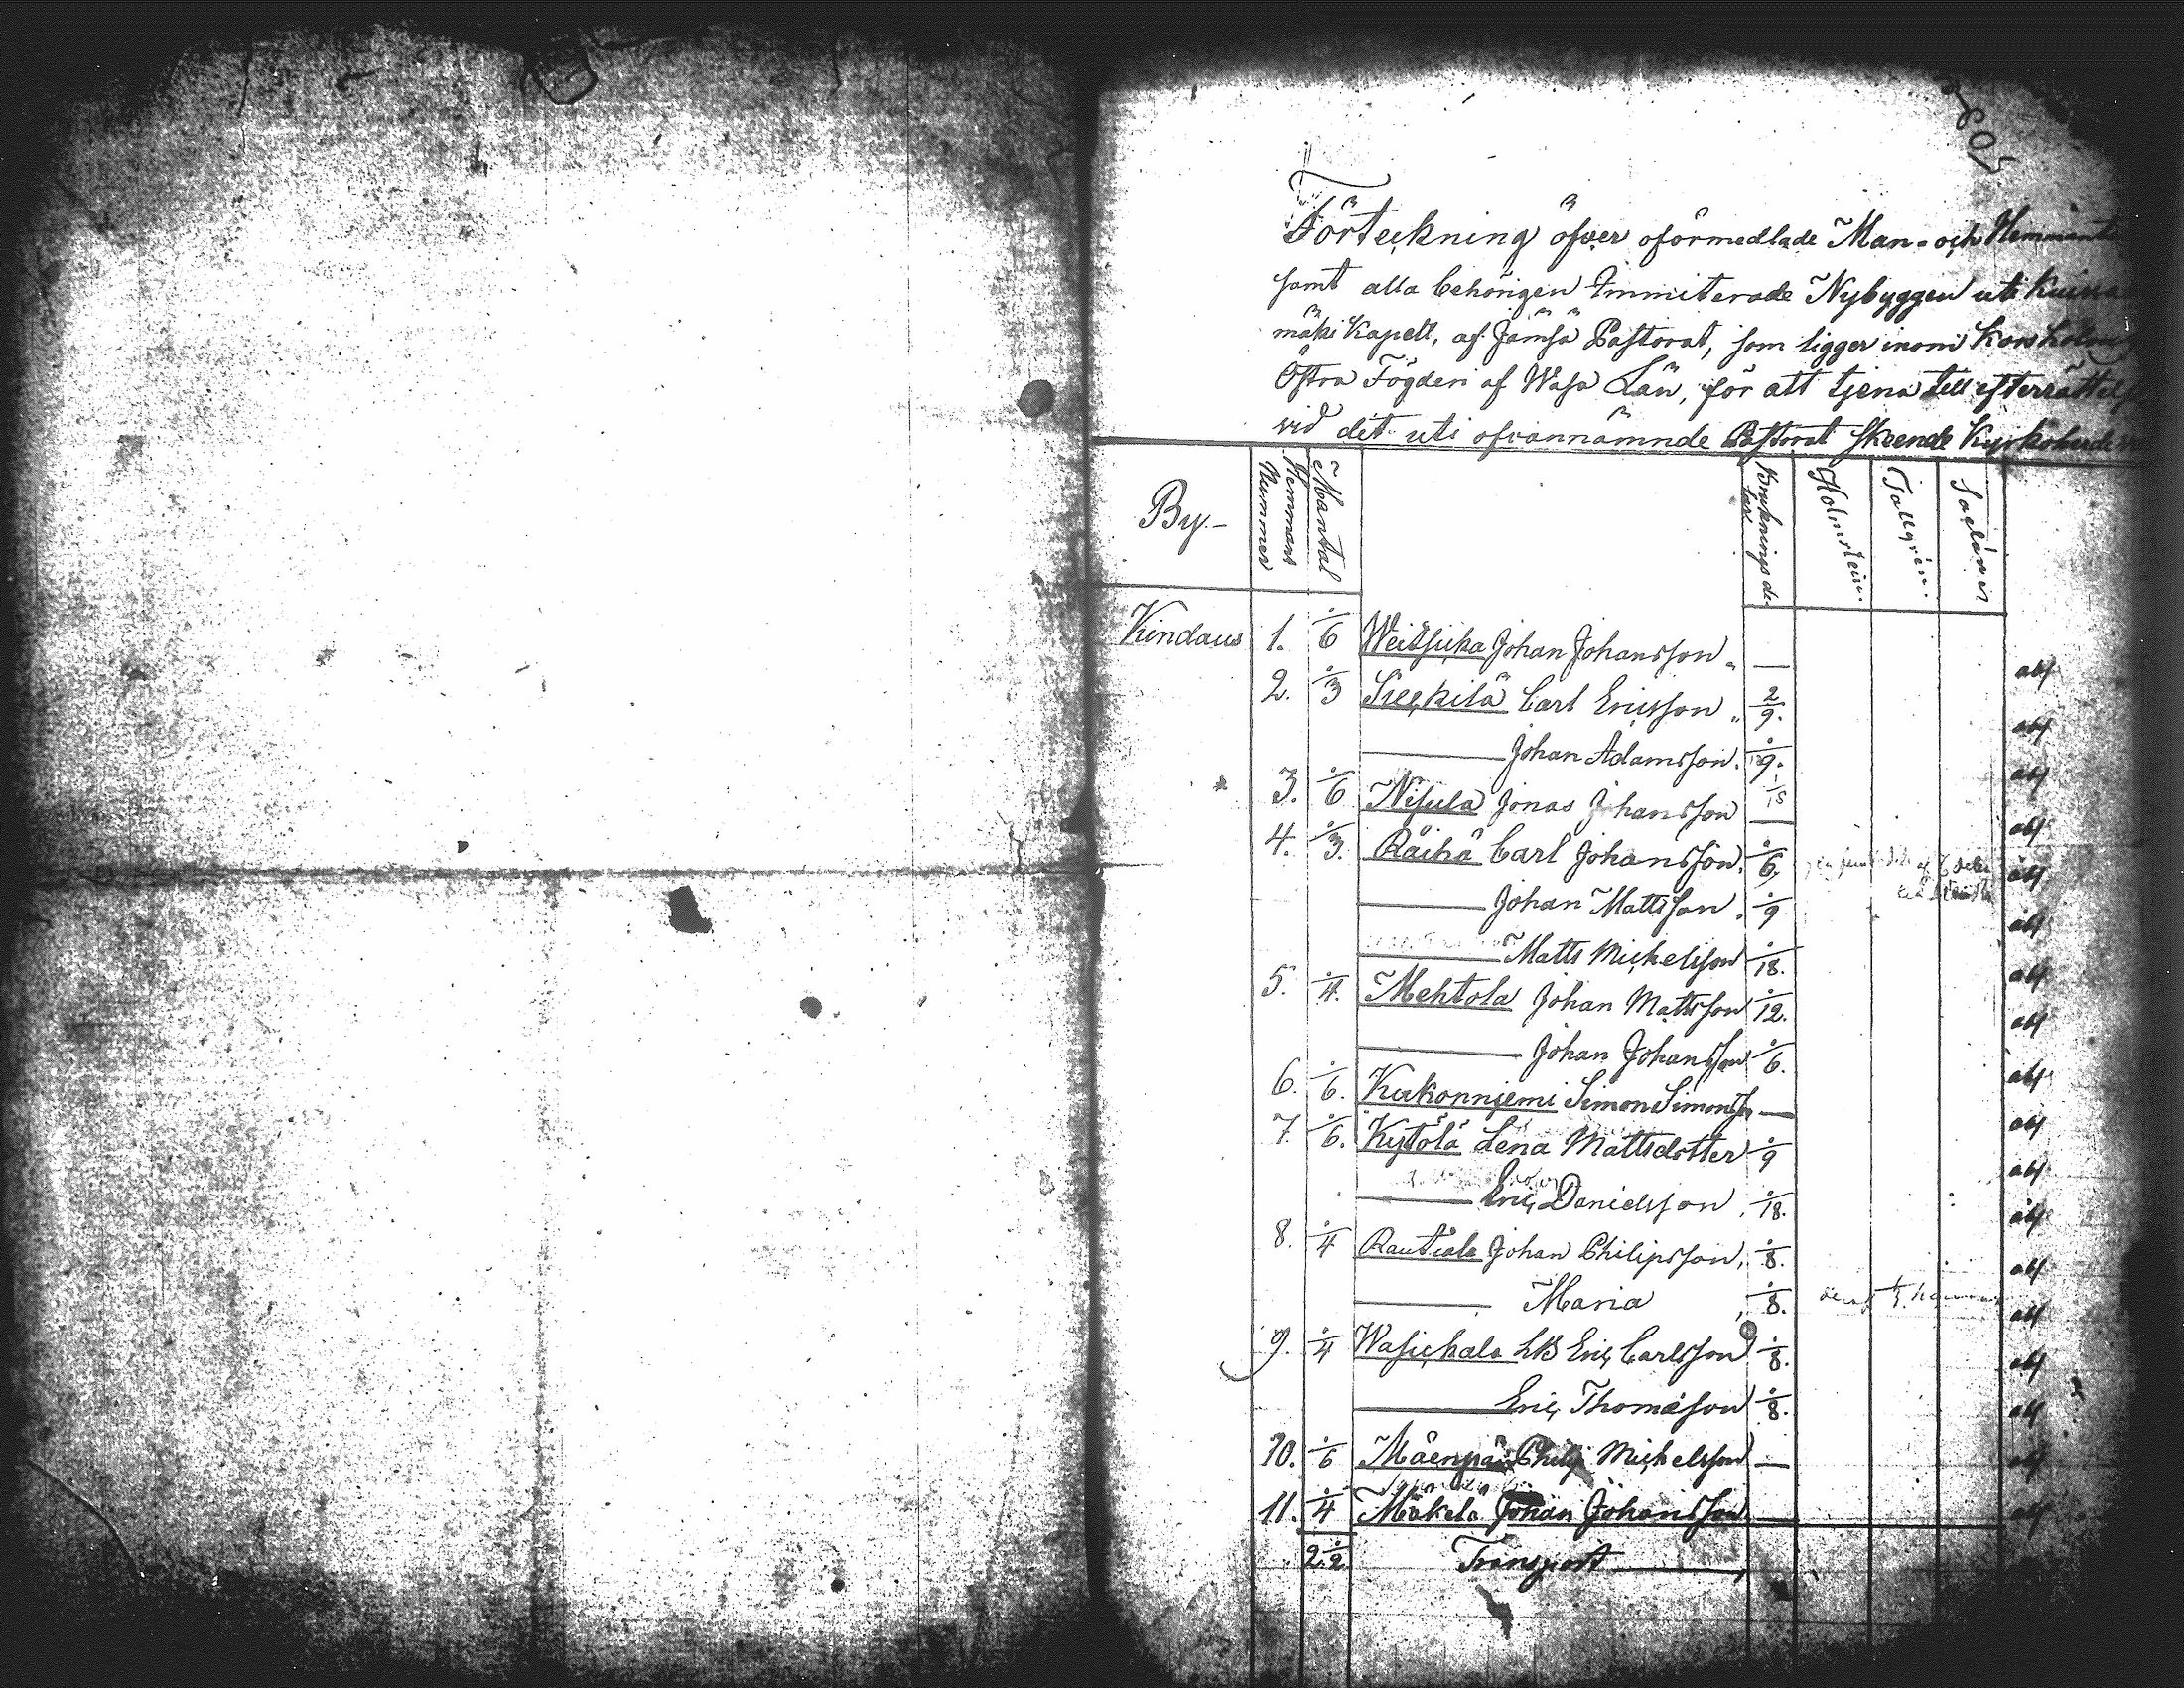 Förteckning öfver oförmedlade Man- och
samt alla behörigen Immiterade Nybyggen uti
mäki Kapell, af Jämsä Pastorat, som ligger inom Korsholms
Östra Fögderi af Wasa Län, för att tjena till efterrättelse
vid det uti ofvannämnde Pastorat skeende Kyrkoherde
By- Hemmans Nummer Mantal Holmstein. Tallqvén.
Kindaus 1. 1/6 Johan Johansson — abf
2. 1/3 Carl Ericsson 2/9. abf
Johan Adamsson. 1/9. abf
3. 1/6 Nisula Jonas Johansson — abf
4. 1/3. Räihä Carl Johansson. 1/6. abf
Johan Mattsson. 1/9 abf
Matts Michelsson 1/18. abf
5. 1/4. Mehtola Johan Mattsson 1/12. abf
Johan Johansson 1/6. abf
6. 1/6. Kukonniemi Simon Simonss. — abf
7. 1/6. Kytölä Lena Mattsdotter 1/9 abf
Eric Danielsson. 1/18. abf
8. 1/4 Rautiala Johan Philipsson, 1/8. abf
Maria 1/8. abf
9. 1/4 Eric Carlsson 1/8. abf
Eric Thomasson 1/8. abf
10. 1/6 Mäenpää Philip Michelsson — abf
11. 1/4 Mäkelä Johan Johansson — abf
2 1/2 Transport